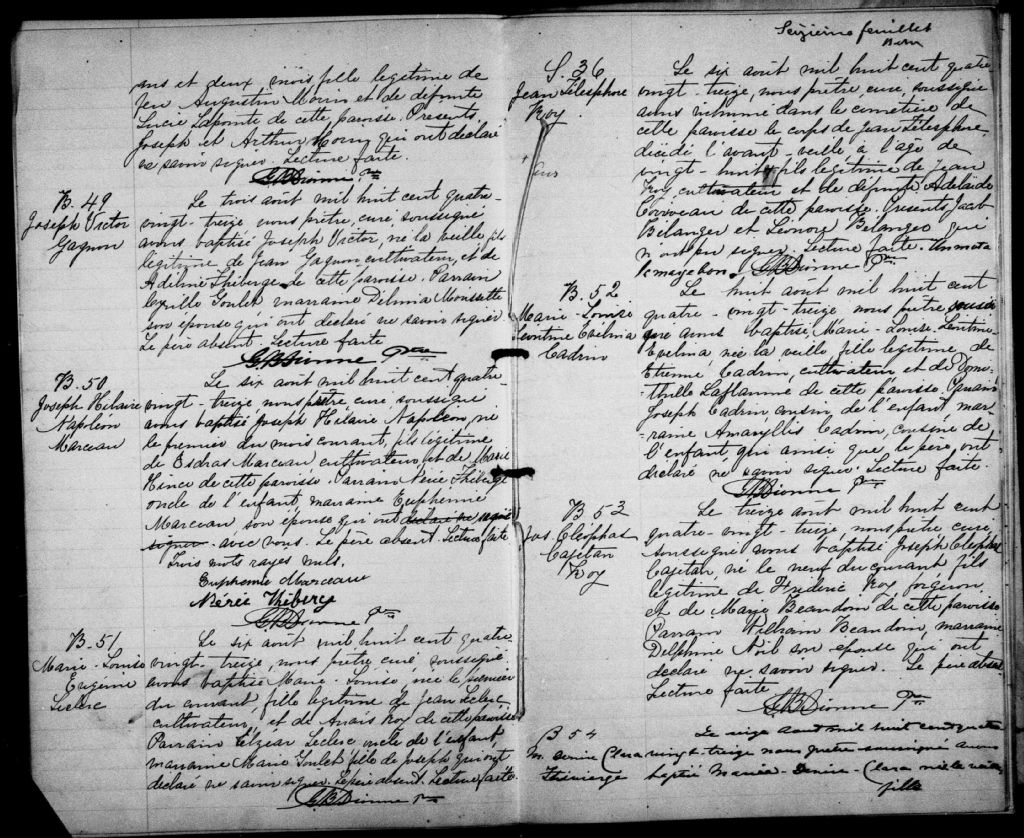 ans et deux mois fille legitime de
feu Augustin Morin et de defunte
Lucie Lapointe de cette paroisse. Presents
Joseph et Arthur Morin qui ont déclaré
ne savoir signer. Lecture faite.
GBDionne Ptre
B. 49
Joseph Victor
Gagnon
Le trois août mil huit cent quatre-
vingt-treize nous prêtre, curé soussigné
avons baptisé Joseph Victor, né la veille, fils
légitime de Jean Gagnon cultivateur, et de
Adeline Théberge de cette paroisse. Parrain
Cyrille Goulet marraine Delima
son épouse qui ont declaré ne savoir signer
Le père absent. Lecture faite
GBDionne Ptre
B. 50
Joseph Hilaire
Napoléon
Marceau
Le six août mil huit cent quatre-
vingt-treize nous prêtre curé soussigné
avons baptisé Joseph Hilaire Napoléon, né
le premier du mois courant, fils légitime
de Esdras Marceau cultivateur, et de Marie
de cette paroisse. Parrain Nérée Théberge
oncle de l'enfant, marraine Eupheme
Marceau son épouse qui ont declaré ne savoir
signer avec nous. Le père absent. Lecture faite
Trois mots rayés nuls.
Eupheme Marceau
Nérée Théberge
GBDionne Ptre
B. 51
Marie-Louise
Eugénie
Leclerc
Le six août mil huit cent quatre
vingt-treize, nous prêtre curé soussigné
avons baptisé Marie-Louise, née le premier
du courant, fille legitime de Jean Leclerc
cultivateur, et de Anais Roy de cette paroisse
Parrain Elzéar Leclerc oncle de l'enfant
marraine Marie Goulet fille de Joseph qui ont
declaré ne savoir signer. Le père absent. Lecture faite.
GBDionne Ptre
Seizième feuillet
S. 36
Jean Télesphore
Roy
Le six août mil huit cent quatre
vingt-treize, nous prêtre, curé, soussigné
avons inhumé dans le cimetière de
cette paroisse le corps de Jean Télesphore
décédé l'avant-veille à l'âge de
vingt-huit fils légitime de Jean
Roy cultivateur et de défunte Adelaide
Corriveau de cette paroisse. Presents Jacob
Belanger et Belanger qui
n'ont pu signer. Lecture faite. Un mot
GBDionne Ptre
B. 52
Marie-Louise
Léontine Evelina
Cadrin
Le huit août mil huit cent
quatre-vingt-treize nous prêtre soussi-
gné avons baptisé Marie-Louise Léontine-
Evelina née la veille fille legitime de
Etienne Cadrin, cultivateur et de Domi-
thilde Laflamme de cette paroisse. Parrain
Joseph Cadrin cousin de l'enfant mar-
raine Amaryllis Cadrin, cousine de
l'enfant, qui ainsi que le père, ont
declaré ne savoir signer. Lecture faite.
GBDionne Ptre
B 53
Jos. Cléophas
Cajetan
Roy
Le treize août mil huit cent
quatre-vingt-treize nous prêtre curé,
soussigné avons baptisé Joseph Cléophas
Cajetan, né le neuf du courant fils
legitime de Fréderic Roy forgeron
et de Marie Beaudoin de cette paroisse
Parrain William Beaudoin, marraine
Delphine Noël son epouse qui ont
declaré ne savoir signer. Le père absent
Lecture faite
GBDionne Ptre
B 54
M. Denise Clara
Théberge
août mil huit cent quatre
vingt-treize nous prêtre soussigné avons
baptisé Marie-Denise-Clara née la veille
fille